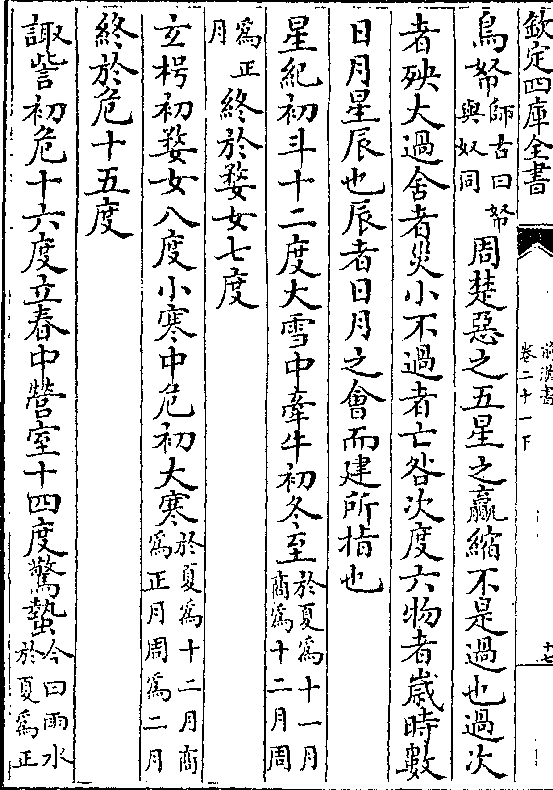 欽定四庫全書
前漢書
卷二十一下
十七
烏帑師古曰帑與奴同周楚惡之五星之贏縮不是過也過次
者殃大過舍者災小不過者亡咎次度六物者歲時數
日月星辰也辰者日月之會而建所指也
星紀初斗十二度大雪中牽牛初冬至於夏為十一月商為十二月周
為正月終於婺女七度
玄枵初婺女八度小寒中危初大寒於夏為十二月商為正月周為二月
終於危十五度
諏訾初危十六度立春中營室十四度驚蟄今曰雨水於夏為正